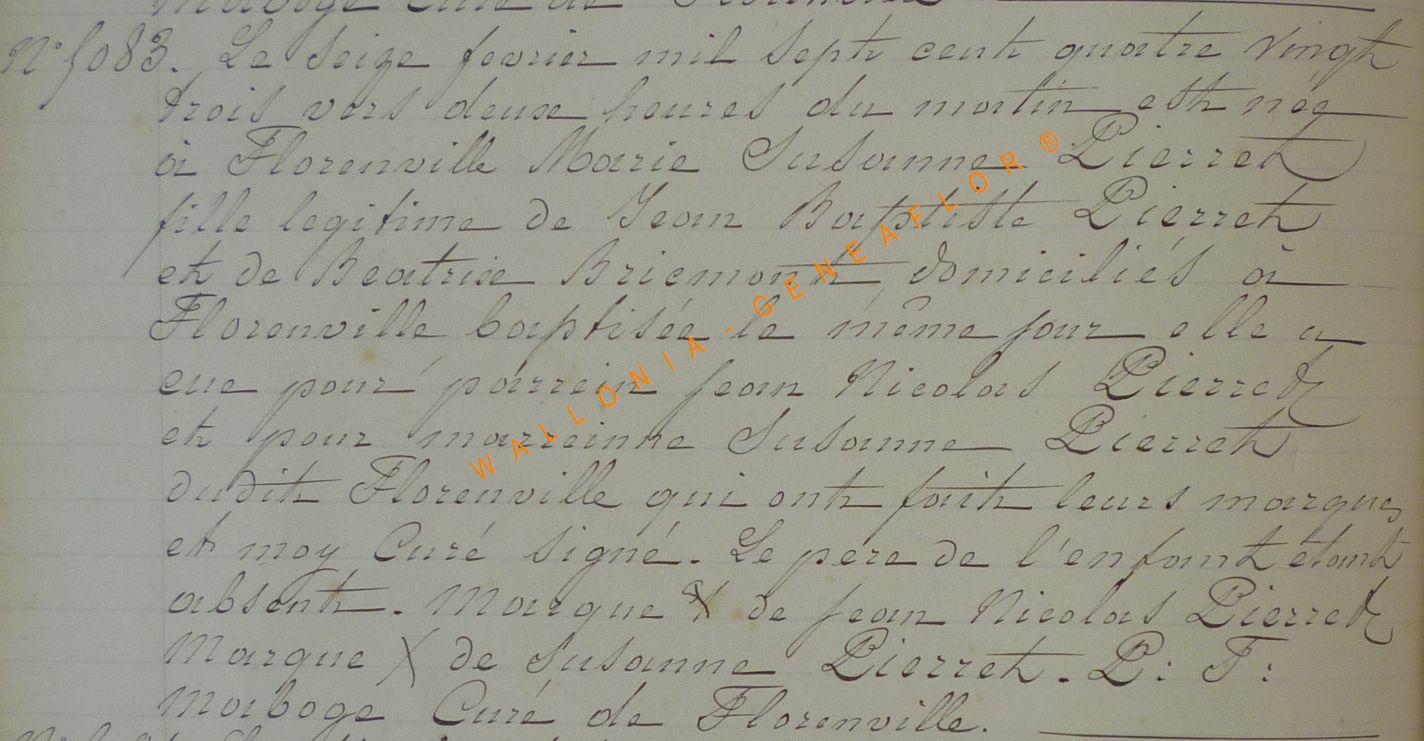 Maboge Curé de Florenville
N° 5083. Le seize fevrier mil sept cent quatre vingt
trois vers deux heures du matin est née
à Florenville Marie Susanne Pierret
fille legitime de Jean Baptiste Pierret
et de Beatrix Bricmont domiciliés à
Florenville baptisée le même jour elle a
eue pour parrein Jean Nicolas Pierret
et pour marreinne Susanne Pierret
dudit Florenville qui ont fait leurs marques
et moy Curé signé. Le pere de l'enfant étant
absent. Marque X de Jean Nicolas Pierret
Marque X de Susanne Pierret. P: F:
Maboge Curé de Florenville.
WALLONIA - GENEAFLOR ®